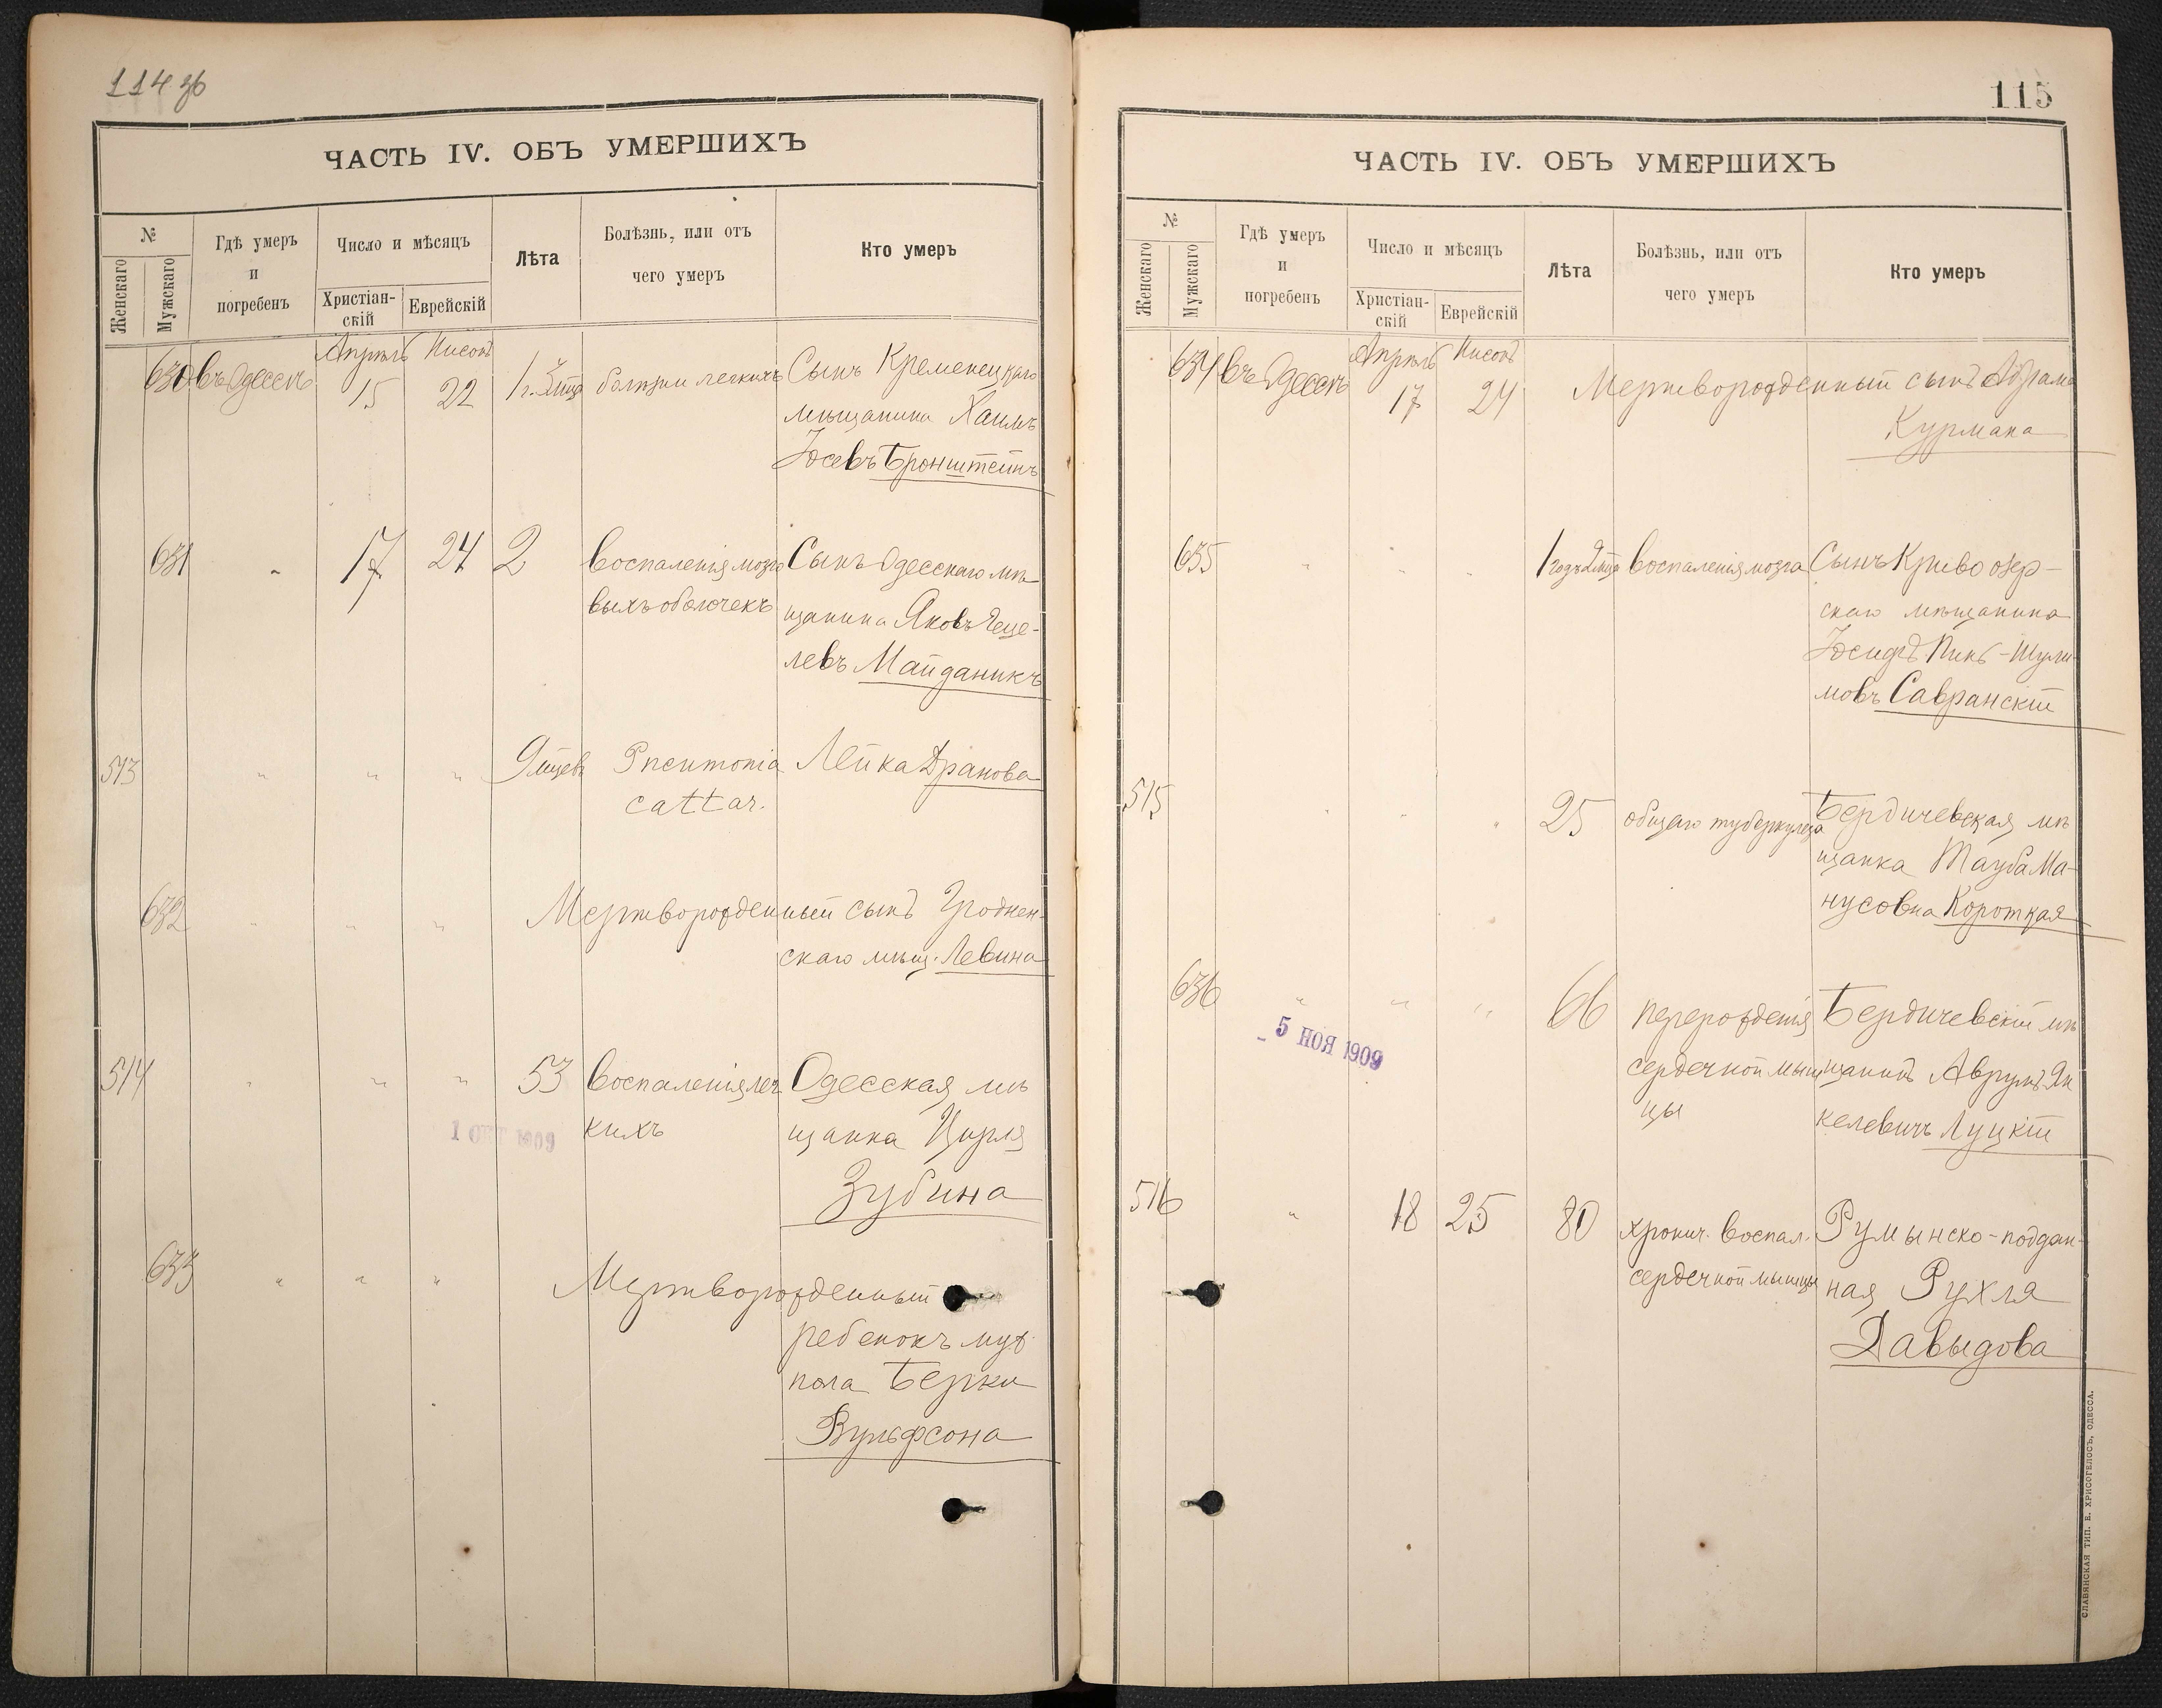 114 об
ЧАСТЬ IV. ОБЪ УМЕРШИХЪ
№
Женскаго
Мужскаго
Гдѣ умеръ
и
погребенъ
Число и мѣсяцъ
Христіан-
скій
Еврейскій
Лѣта
Болѣзнь, или отъ
чего умеръ
Кто умеръ
Апрѣль Нисонъ
630 въ Одессѣ 15 22 1 г. 3 мца болѣзни легкихъ Сынъ Кременецкаго
мѣщанина Хаимъ
Іосевъ Бронштейнъ
631 " 17 24 2 воспаленія мозго Сынъ Одесскаго мѣ
выхъ оболочекъ щанина Яковъ
левъ Майданикъ
513 " " " 9 мцевъ Pneumonia Лейка Дранова
cattar.
632 " " " Мертворожденный сынъ Гроднен-
скаго мѣщ. Левина
514 " " " 53 воспаленія лег Одесская мѣ
кихъ щанка Цирля
Зубина
1 ОКТ 1909
633 " " " Мертворожденный
ребенокъ муж
пола Берки
Вульфсона
115
ЧАСТЬ IV. ОБЪ УМЕРШИХЪ
№
Женскаго
Мужскаго
Гдѣ умеръ
и
погребенъ
Число и мѣсяцъ
Христіан-
скій
Еврейскій
Лѣта
Болѣзнь, или отъ
чего умеръ
Кто умеръ
Апрѣль Нисонъ
634 въ Одессѣ 17 24 Мертворожденный сынъ Абрама
Курмана
635 " " " 1 годъ 2 мца воспаленія мозга Сынъ Криво озер-
скаго мѣщанина
Іосифъ Пинь-Шули-
мовъ Савранскій
515 " " " 25 общаго туберкулеза Бердичевская мѣ
щанка Тауба Ма-
нусовна Короткая
636 " " " 66 перерожденія Бердичевскій мѣ
сердечной мыш щанинъ Аврумъ Ян
цы келевичъ Луцкій
- 5 НОЯ 1909
516 " 18 25 80 хронич. воспал. Румынско-поддан-
сердечной мышцы ная Рухля
Давыдова
СЛАВЯНСКАЯ ТИП. Е. ХРИСОГЕЛОСЪ, ОДЕССА.